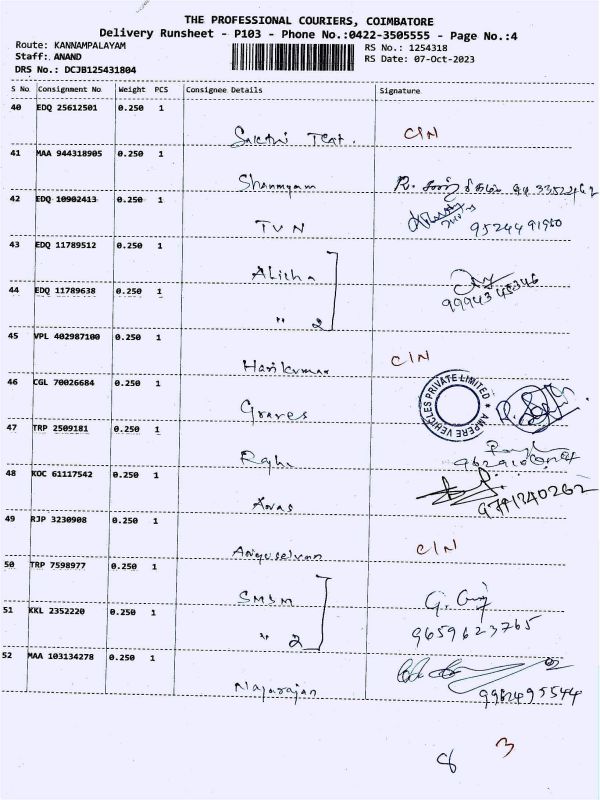 THE PROFESSIONAL COURIERS, COIMBATORE
Delivery Runsheet - P103 - Phone No.:0422-3505555 - Page No.:4
Route: KANNAMPALAYAM RS No.: 1254318
Staff: ANAND RS Date: 07-Oct-2023
DRS No.: DCJB125431804
S No Consignment No Weight PCS Consignee Details Signature
40 EDQ 25612501 0.250 1
Sakthi Teat. CIN
41 MAA 944318905 0.250 1
Shanmgam R.
42 EDQ 10902413 0.250 1
TVN 9524491960
43 EDQ 11789512 0.250 1
Alisha
44 EDQ 11789638 0.250 1 9994345346
" 2
45 VPL 402987100 0.250 1
Harikumar CIN
46 CGL 70026684 0.250 1
AMPERE VEHICLES PRIVATE LIMITED
Graves
47 TRP 2509181 0.250 1
Raghu
48 KOC 61117542 0.250 1
Anas 9791240262
49 RJP 3230908 0.250 1
CIN
50 TRP 7598977 0.250 1
SMSM G.
51 KKL 2352220 0.250 1 9659623765
" 2
52 MAA 103134278 0.250 1
Nagarajan 9962495544
8 3